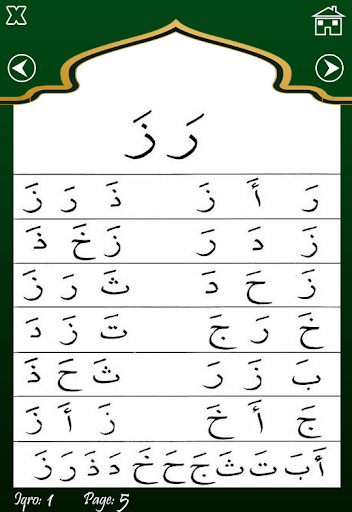 رَ زَ
رَ أَ زَ ذَ رَ زَ
زَ دَ رَ زَ خَ ذَ
زَ حَ دَ ثَ رَ زَ
خَ رَ جَ تَ زَ دَ
بَ زَ رَ ثَ حَ ذَ
جَ أَ خَ زَ أَ زَ
أَ بَ تَ ثَ جَ حَ خَ دَ ذَ رَ زَ
Iqro: 1 Page: 5